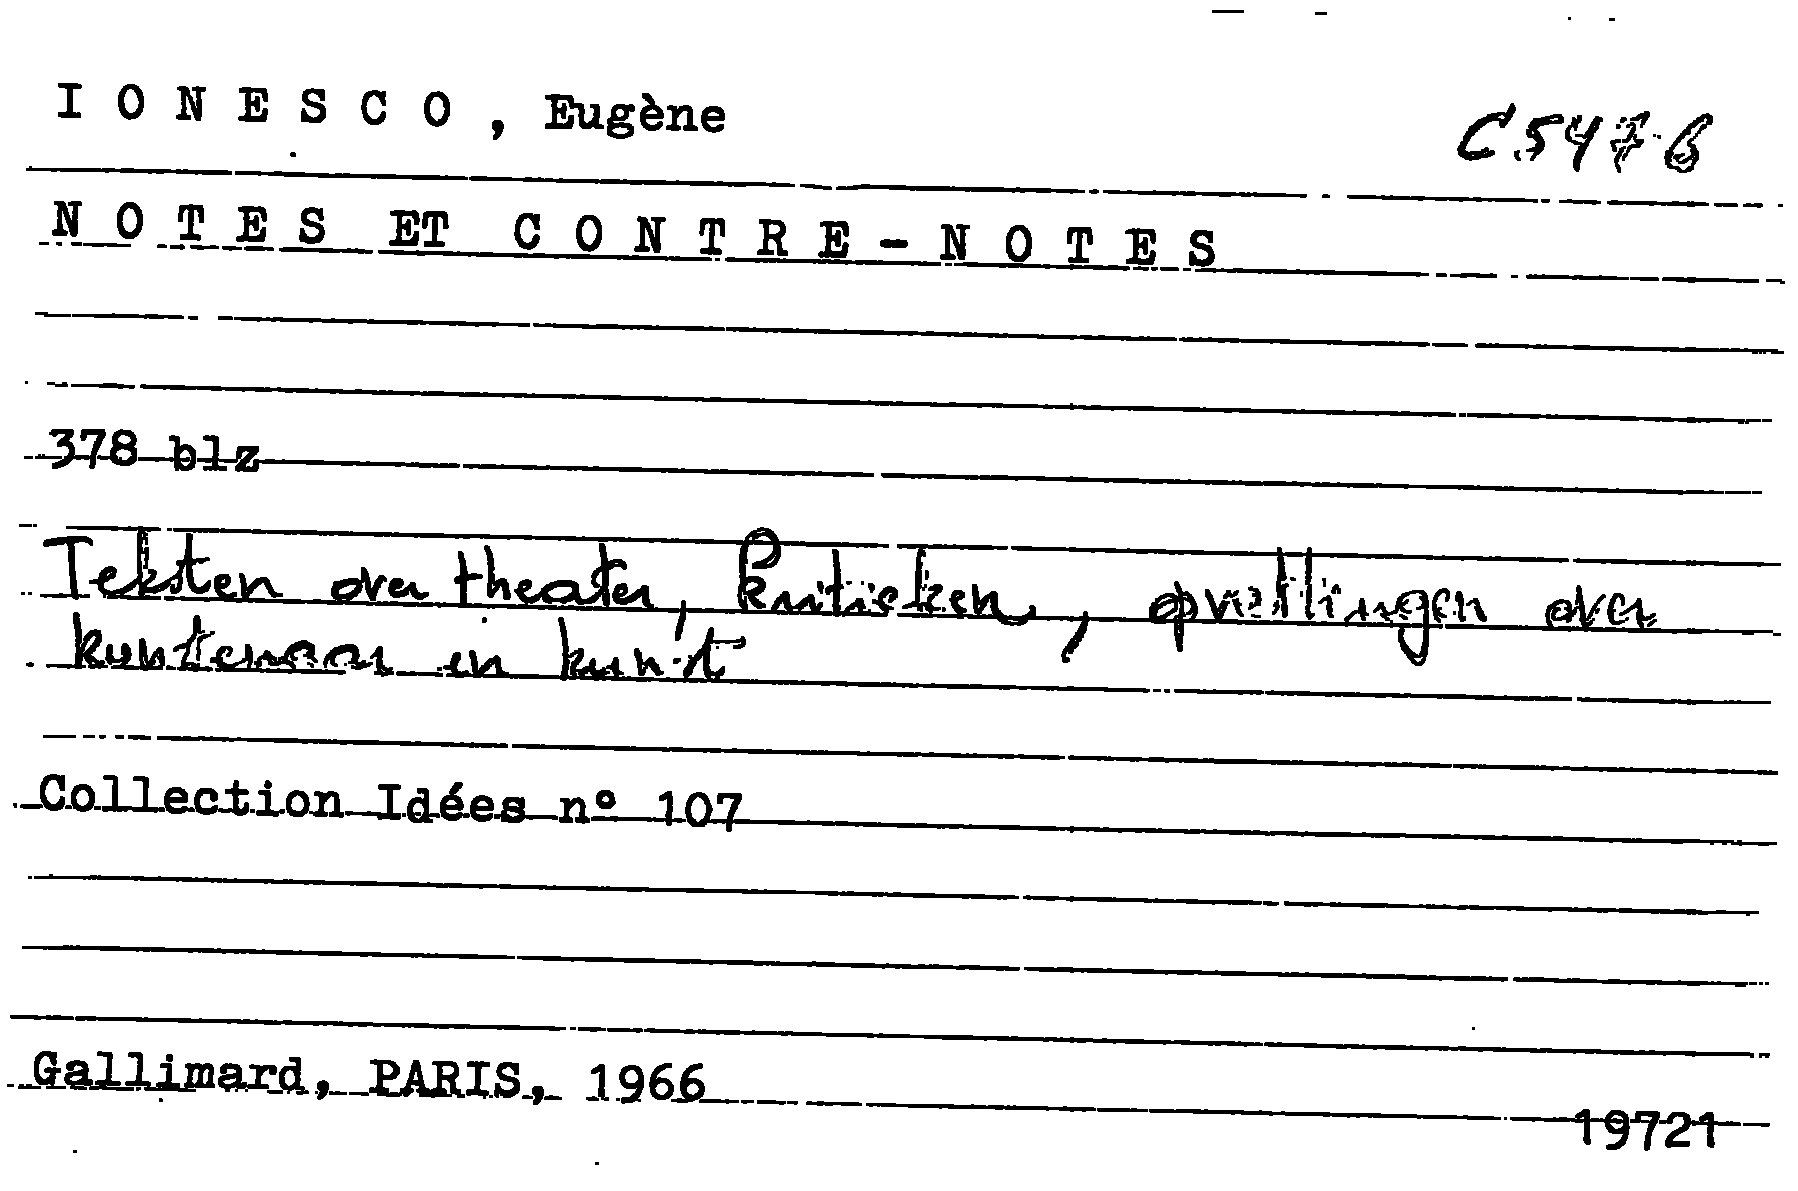 IONESCO, Eugène
C547-6
NOTES ET CONTRE-NOTES
378 blz
Teksten over theater, kritieken, opvattingen over
kunstenaar en kunst
Collection Idées n° 107
Gallimard, PARIS, 1966
19721